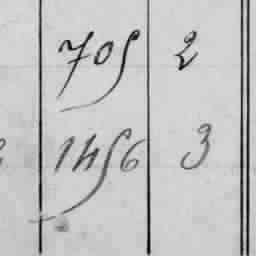 705 2
1456 3